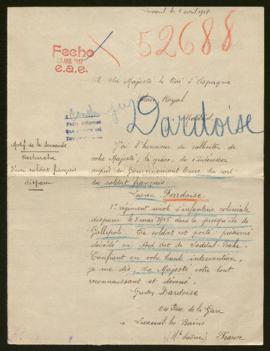 Luxeuil le 6 avril 1917
Fecho
13 ABR 1917
e.a.e.
52688
A Sa Majesté le Roi d'Espagne
Palais Royal
Madrid
Dardoise
J'ai l'honneur de solliciter de
votre Majesté, la grâce, de s'intéresser
auprès du Gouvernement Turc du sort
du soldat français
Motif de la demande
Recherche
d'un soldat français
disparu
Lucien Dardoise
1er régiment mixte d'infanterie coloniale,
disparu le 8 mai 1915 dans la presqu'île de
Gallipoli. Ce soldat est porté, présumé
décédé au Sud Est de Seddul Bahr.
Confiant en votre haute intervention,
je me dis, Sa Majesté votre tout
reconnaissant et dévoué.
Dardoise
Rue de la Gare
Luxeuil les Bains
Hte Saône) France